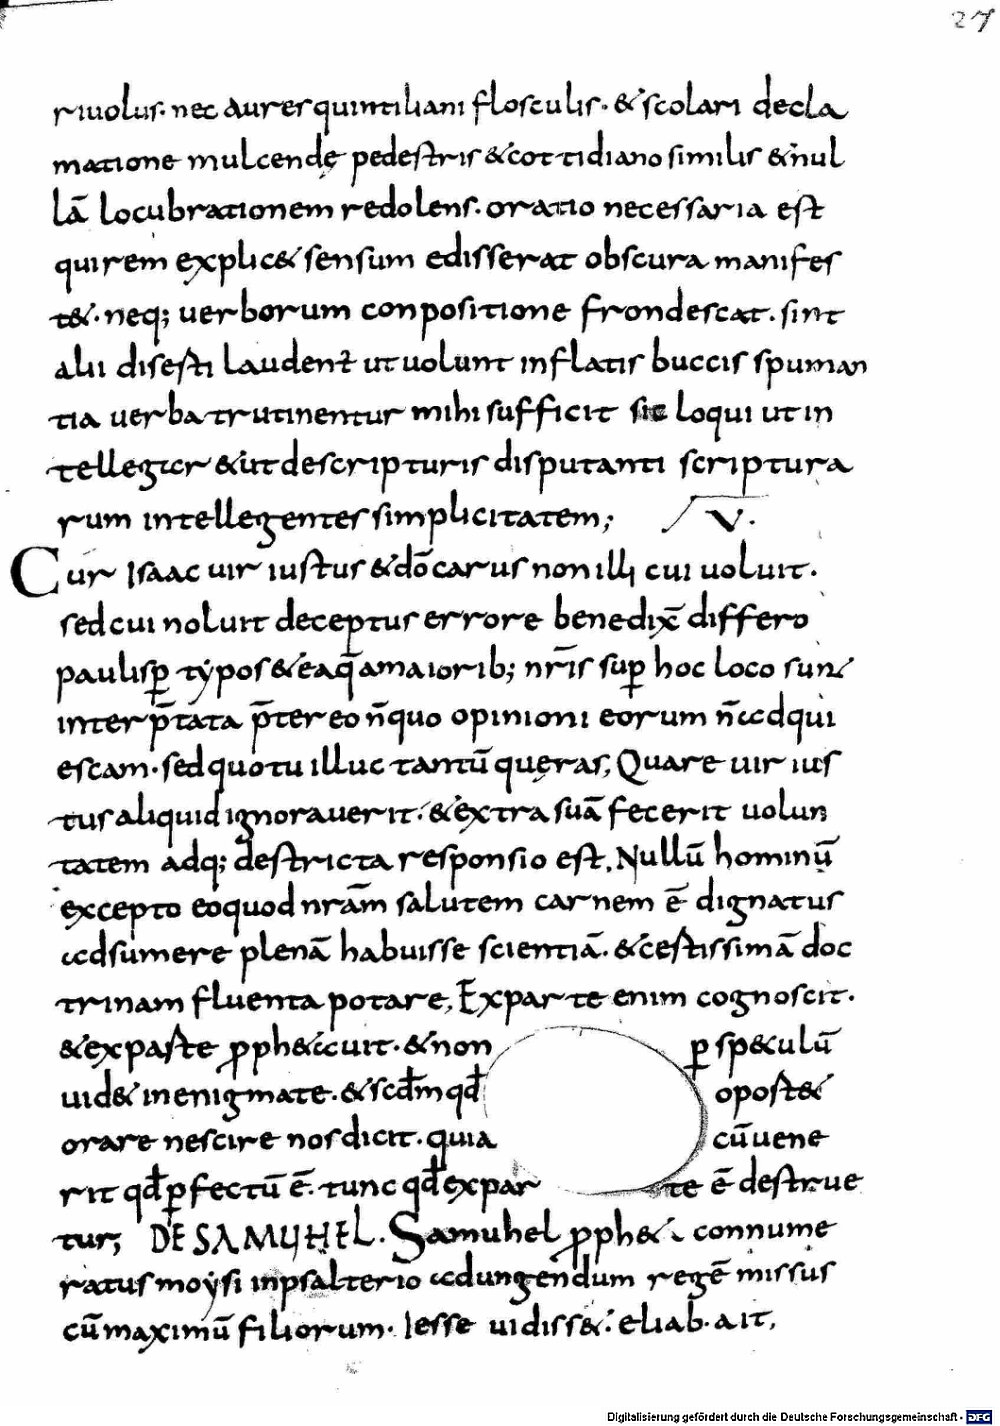 27
riuolus. nec aures quintiliani flosculis. & scolari decla
matione mulcendę pedestris & cottidiano similis & nul
lā locubrationem redolens. oratio necessaria est
qui rem explic& sensum edisserat obscura manifes
t&. neq; uerborum conpositione frondescat. sint
alii diserti laudent̄ ut uolunt inflatis buccis spuman
tia uerba trutinentur mihi sufficit sic loqui ut in
tellegar & ut de scripturis disputanti scriptura
rum intellegentes simplicitatem;      V.
Cur Isaac uir iustus & dō carus non illi cui uoluit.
sed cui noluit deceptus errore benedix̄ differo
paulisꝑ typos & ea q̄ a maiorib; nr̄is suꝑ hoc loco sun̄
interp̄tata p̄ter eo n̄ quo opinioni eorum n̄ adqui
escam. sed quo tu illuc tantū quęras, Quare uir ius
tus aliquid ignorauerit. & extra suā fecerit uolun
tatem adq; destricta responsio est, Nullū hominū
excepto eo quod nr̄am salutem carnem ē dignatus
adsumere plenā habuisse scientiā. & cęstissimā doc
trinam fluenta potare, Ex parte enim cognoscit.
& ex parte proph&auit. & non ꝑ speculū
uid& in enigmate. & scd̄m qd̄ oport&
orare nescire nos dicit. quia cū uene
rit qd̄ ꝑfectū ē. tunc qd̄ ex parte ē destrue
tur; DE SAMUHEL. Samuhel proph&a connume
ratus moysi in psalterio ad ungendum regē missus
cū maximū filiorum. Iesse uidiss&. eliab. ait,
Digitalisierung gefördert durch die Deutsche Forschungsgemeinschaft - DFG